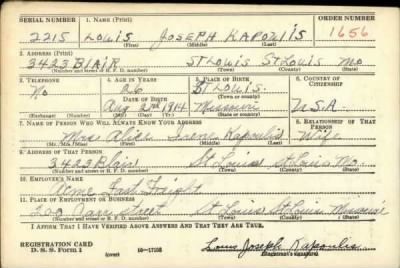 SERIAL NUMBER 1. NAME (Print) ORDER NUMBER
2215 LOUIS JOSEPH KAPOULIS 1656
(First) (Middle) (Last)
2. ADDRESS (Print)
3423 BLAIR ST LOUIS ST LOUIS MO
(Number and street or R. F. D. number) (Town) (County) (State)
3. TELEPHONE 4. AGE IN YEARS 5. PLACE OF BIRTH 6. COUNTRY OF CITIZENSHIP
No 26 St Louis
DATE OF BIRTH (Town or county)
Aug 2nd 1914 Missouri U.S.A.
(Exchange) (Number) (Mo.) (Day) (Yr.) (State or country)
7. NAME OF PERSON WHO WILL ALWAYS KNOW YOUR ADDRESS 8. RELATIONSHIP OF THAT PERSON
Mrs Alice Irene Kapoulis Wife
(Mr., Mrs., Miss) (First) (Middle) (Last)
9. ADDRESS OF THAT PERSON
3423 Blair St Louis St Louis Mo.
(Number and street or R. F. D. number) (Town) (County) (State)
10. EMPLOYER'S NAME
Acme Fast Freight
11. PLACE OF EMPLOYMENT OR BUSINESS
200 Carr Street St Louis St Louis Missouri
(Number and street or R. F. D. number) (Town) (County) (State)
I AFFIRM THAT I HAVE VERIFIED ABOVE ANSWERS AND THAT THEY ARE TRUE.
REGISTRATION CARD Louis Joseph Kapoulis
D. S. S. Form 1 (over) 16—17105 (Registrant's signature)